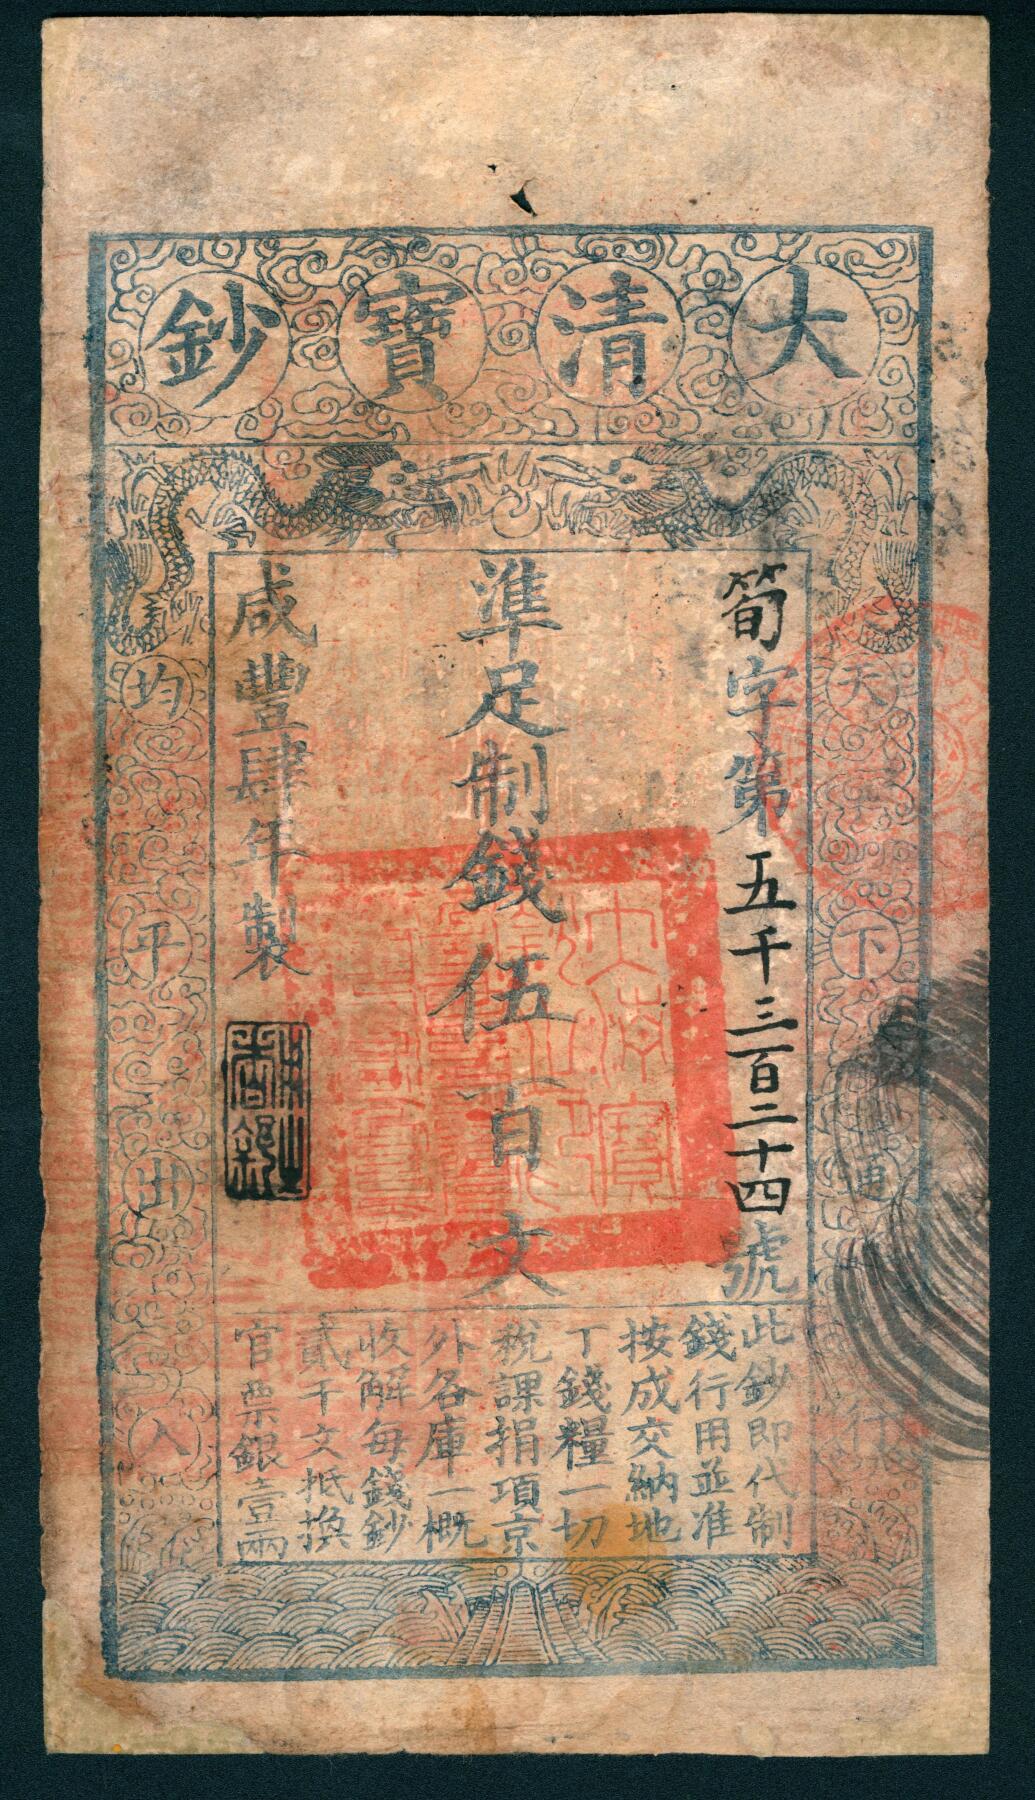 大清寶鈔
天下通行
均平出入
筍字第五千三百二十四號
準足制錢伍百文
咸豐肆年製
此鈔即代制
錢行用並准
按成交納地
丁錢糧一切
稅課捐項京
外各庫一概
收解每錢鈔
貳千文抵換
官票銀壹兩